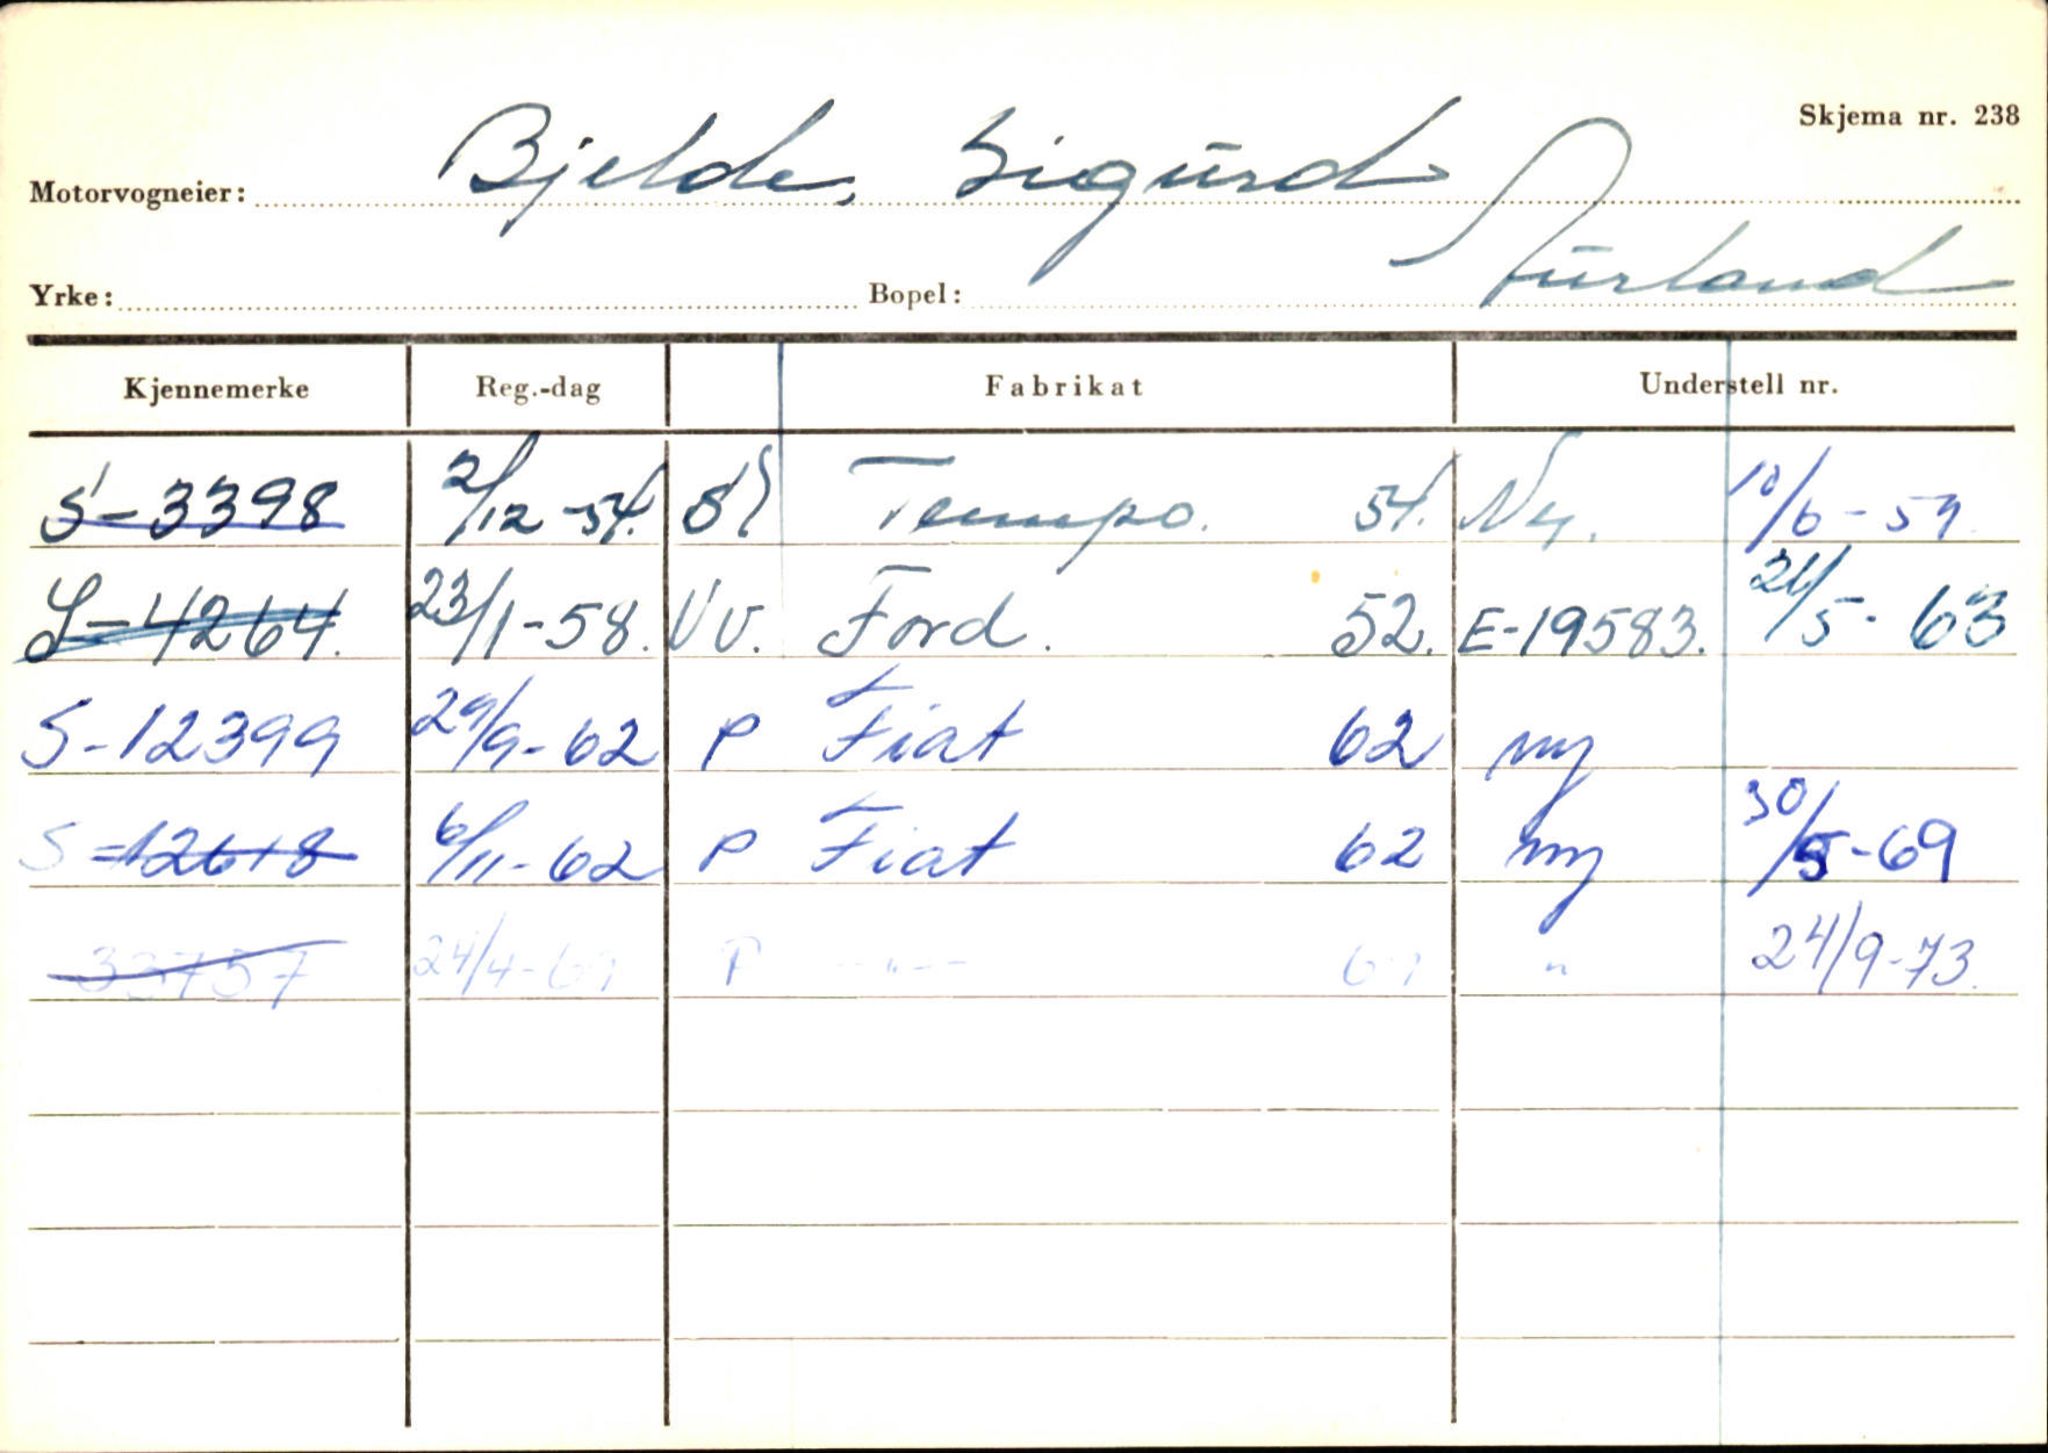 Skjema nr. 238
Motorvogneier: Bjelde, Sigurd
Yrke: Bopel: Aurland
Kjennemerke Reg.-dag Fabrikat Understell nr.
S-3398 2/12-54. Tempo. 54. Ny. 10/6-59
S-4264. 23/1-58. Vv. Ford. 52. E-19583. 5-63
S-12399 29/9-62 P Fiat 62 ny
S-12618 6/11-62 P Fiat 62 ny 30/5-69
33757 24/4-69 P -"- 69 " 24/9-73.